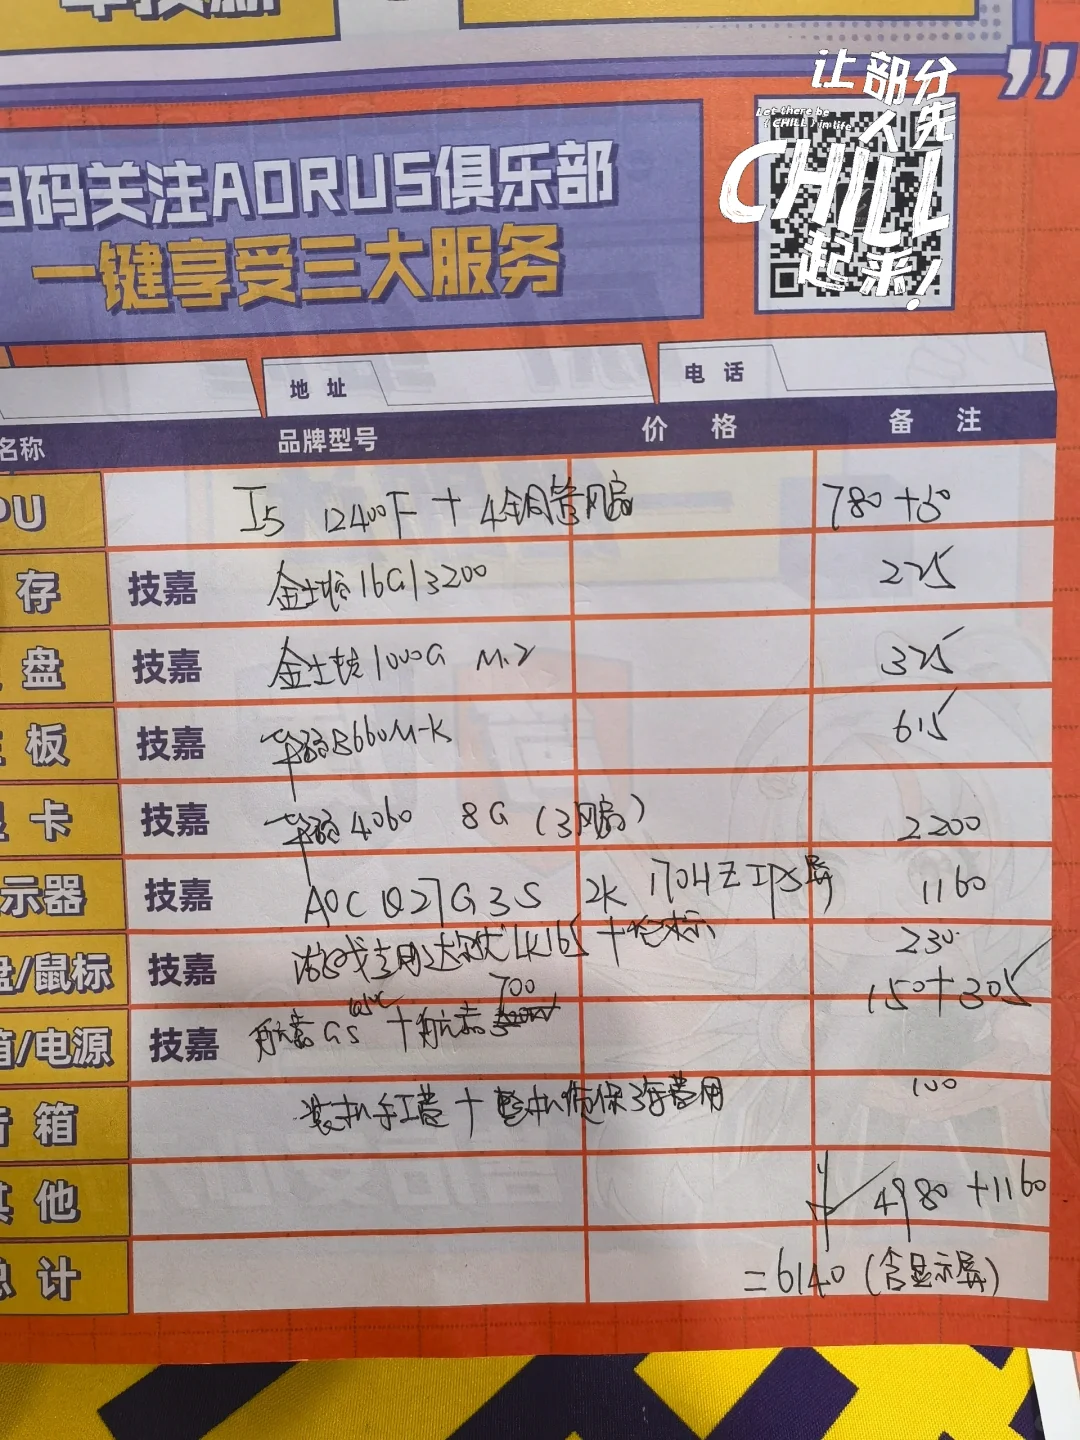 让部分
人先
Let there be
(CHILL) in life
CHILL
起来!
码关注AORUS俱乐部
一键享受三大服务
地址
电话
名称 品牌型号 价格 备注
PU I5 12400F + 4铜管风扇 780+50
存 技嘉 金士顿16G/3200 225
盘 技嘉 金士顿1000G M.2 325
板 技嘉 华硕B660M-K 615
卡 技嘉 华硕4060 8G (3风扇) 2200
示器 技嘉 AOC Q27G3S 2K 170HZ IPS屏 1160
盘/鼠标 技嘉 游戏专用达尔优LK165+鼠标 230
箱/电源 技嘉 航嘉GS +航嘉 700 150+305
箱 装机手工费+整机质保3年费用 100
其他 4980+1160
总计 =6140(含显示屏)